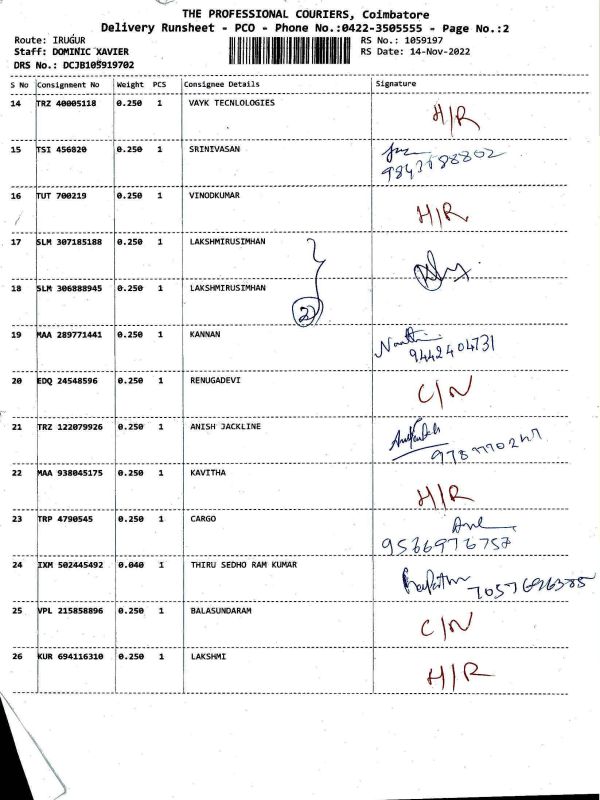 THE PROFESSIONAL COURIERS, Coimbatore
Delivery Runsheet - PCO - Phone No.:0422-3505555 - Page No.:2
Route: IRUGUR RS No.: 1059197
Staff: DOMINIC XAVIER RS Date: 14-Nov-2022
DRS No.: DCJB105919702
S No Consignment No Weight PCS Consignee Details Signature
14 TRZ 40005118 0.250 1 VAYK TECNLOLOGIES H/R
15 TSI 456820 0.250 1 SRINIVASAN
16 TUT 700219 0.250 1 VINODKUMAR H/R
17 SLM 307185188 0.250 1 LAKSHMIRUSIMHAN
18 SLM 306888945 0.250 1 LAKSHMIRUSIMHAN 2
19 MAA 289771441 0.250 1 KANNAN 9442404731
20 EDQ 24548596 0.250 1 RENUGADEVI C/N
21 TRZ 122079926 0.250 1 ANISH JACKLINE
22 MAA 938045175 0.250 1 KAVITHA H/R
23 TRP 4790545 0.250 1 CARGO 9566976757
24 IXM 502445492 0.040 1 THIRU SEDHO RAM KUMAR
25 VPL 215858896 0.250 1 BALASUNDARAM C/N
26 KUR 694116310 0.250 1 LAKSHMI H/R